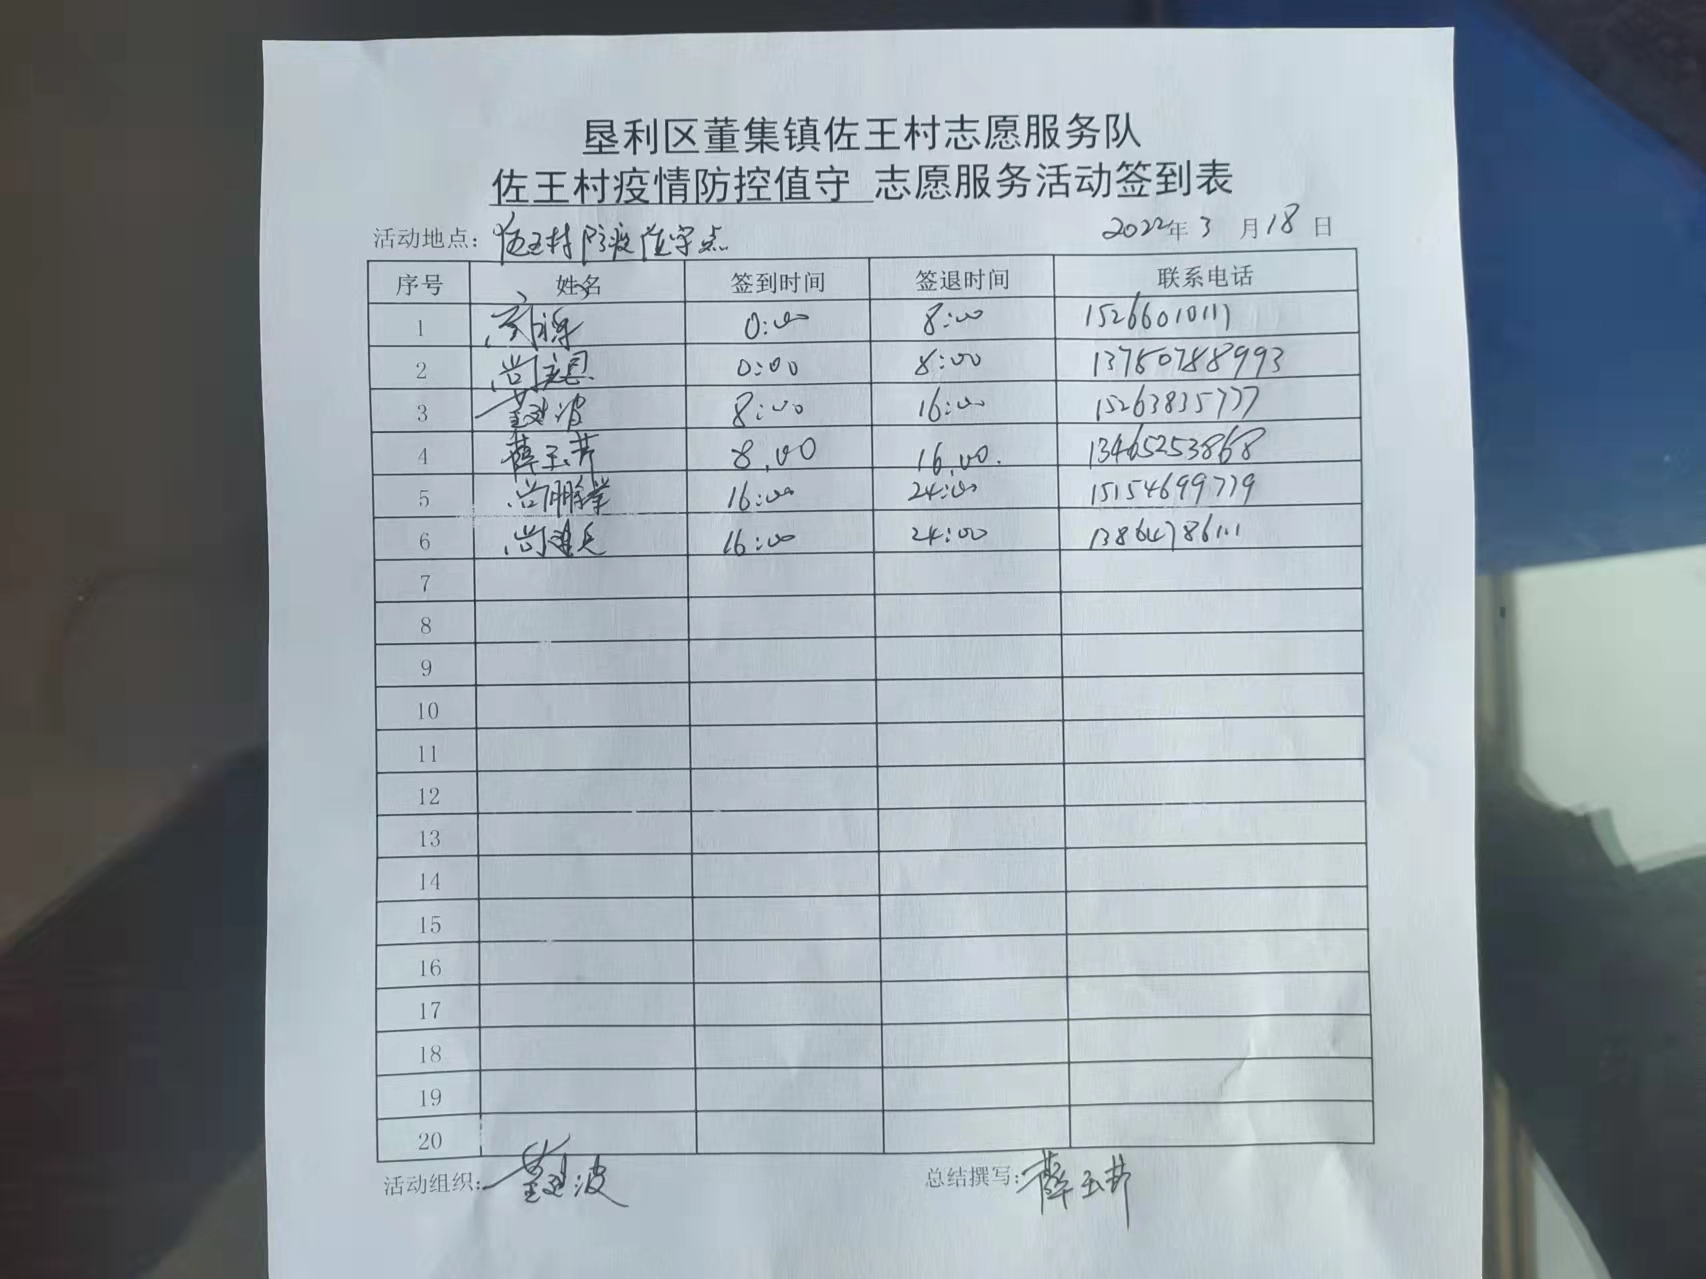 垦利区董集镇佐王村志愿服务队
佐王村疫情防控值守 志愿服务活动签到表
活动地点：佐王村防疫值守点 2022年3月18日
序号 姓名 签到时间 签退时间 联系电话
1 0:00 8:00 15266010111
2 尚 0:00 8:00
3 董建波 8:00 16:00 15263835777
4 薛玉芹 8:00 16:00. 13465253868
5 尚鹏 16:00 24:00 15154699779
6 尚建 16:00 24:00 13864786111
7
8
9
10
11
12
13
14
15
16
17
18
19
20
活动组织：董建波 总结撰写：薛玉芹